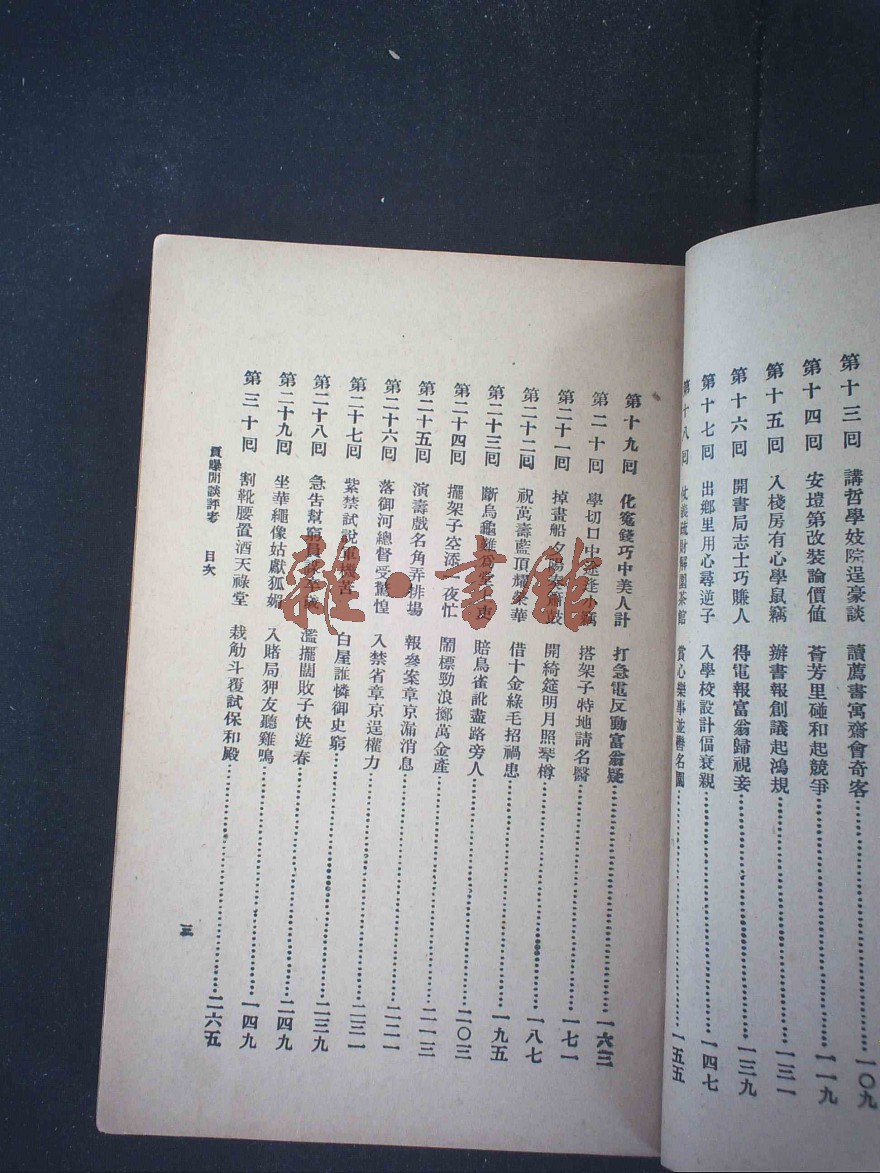 第十三回 講哲學妓院逞豪談 讀薦書寓齋會奇客……一〇九
第十四回 安塏第改裝論價值 薈芳里碰和起競爭……一一九
第十五回 入棧房有心學鼠竊 辦書報創議起鴻規……一三一
第十六回 開書局志士巧賺人 得電報富翁歸視妾……一三九
第十七回 出鄉里用心尋逆子 入學校設計偪衰親……一四七
第十八回 仗義疏財解圍茶館 賞心樂事並轡名園……一五五
第十九回 化冤錢巧中美人計 打急電反動富翁疑……一六三
第二十回 學切口中途逢小竊 搭架子特地請名醫……一七一
第二十一回 掉畫船夕陽奏簫鼓 開綺筵明月照琴樽……一八七
第二十二回 祝萬壽藍頂耀榮華 借十金綠毛招禍患……一九五
第二十三回 斷烏龜難爲堂上吏 賠鳥雀訛盡路旁人……二〇三
第二十四回 擺架子空添一夜忙 鬧標勁浪擲萬金產……二一三
第二十五回 演壽戲名角弄排場 報參案章京漏消息……二二一
第二十六回 落御河總督受驚惶 入禁省章京逞權力……二三一
第二十七回 紫禁試說軍機苦 白屋誰憐御史窮……二三九
第二十八回 急告幫窮員 濫擺闊敗子快遊春……二四九
第二十九回 坐華繩像姑獻狐媚 入賭局狎友聽雞鳴……一四九
第三十回 割靴腰置酒天祿堂 栽觔斗覆試保和殿……二六五
賈曝閒談評考 目次
三
雜·書館